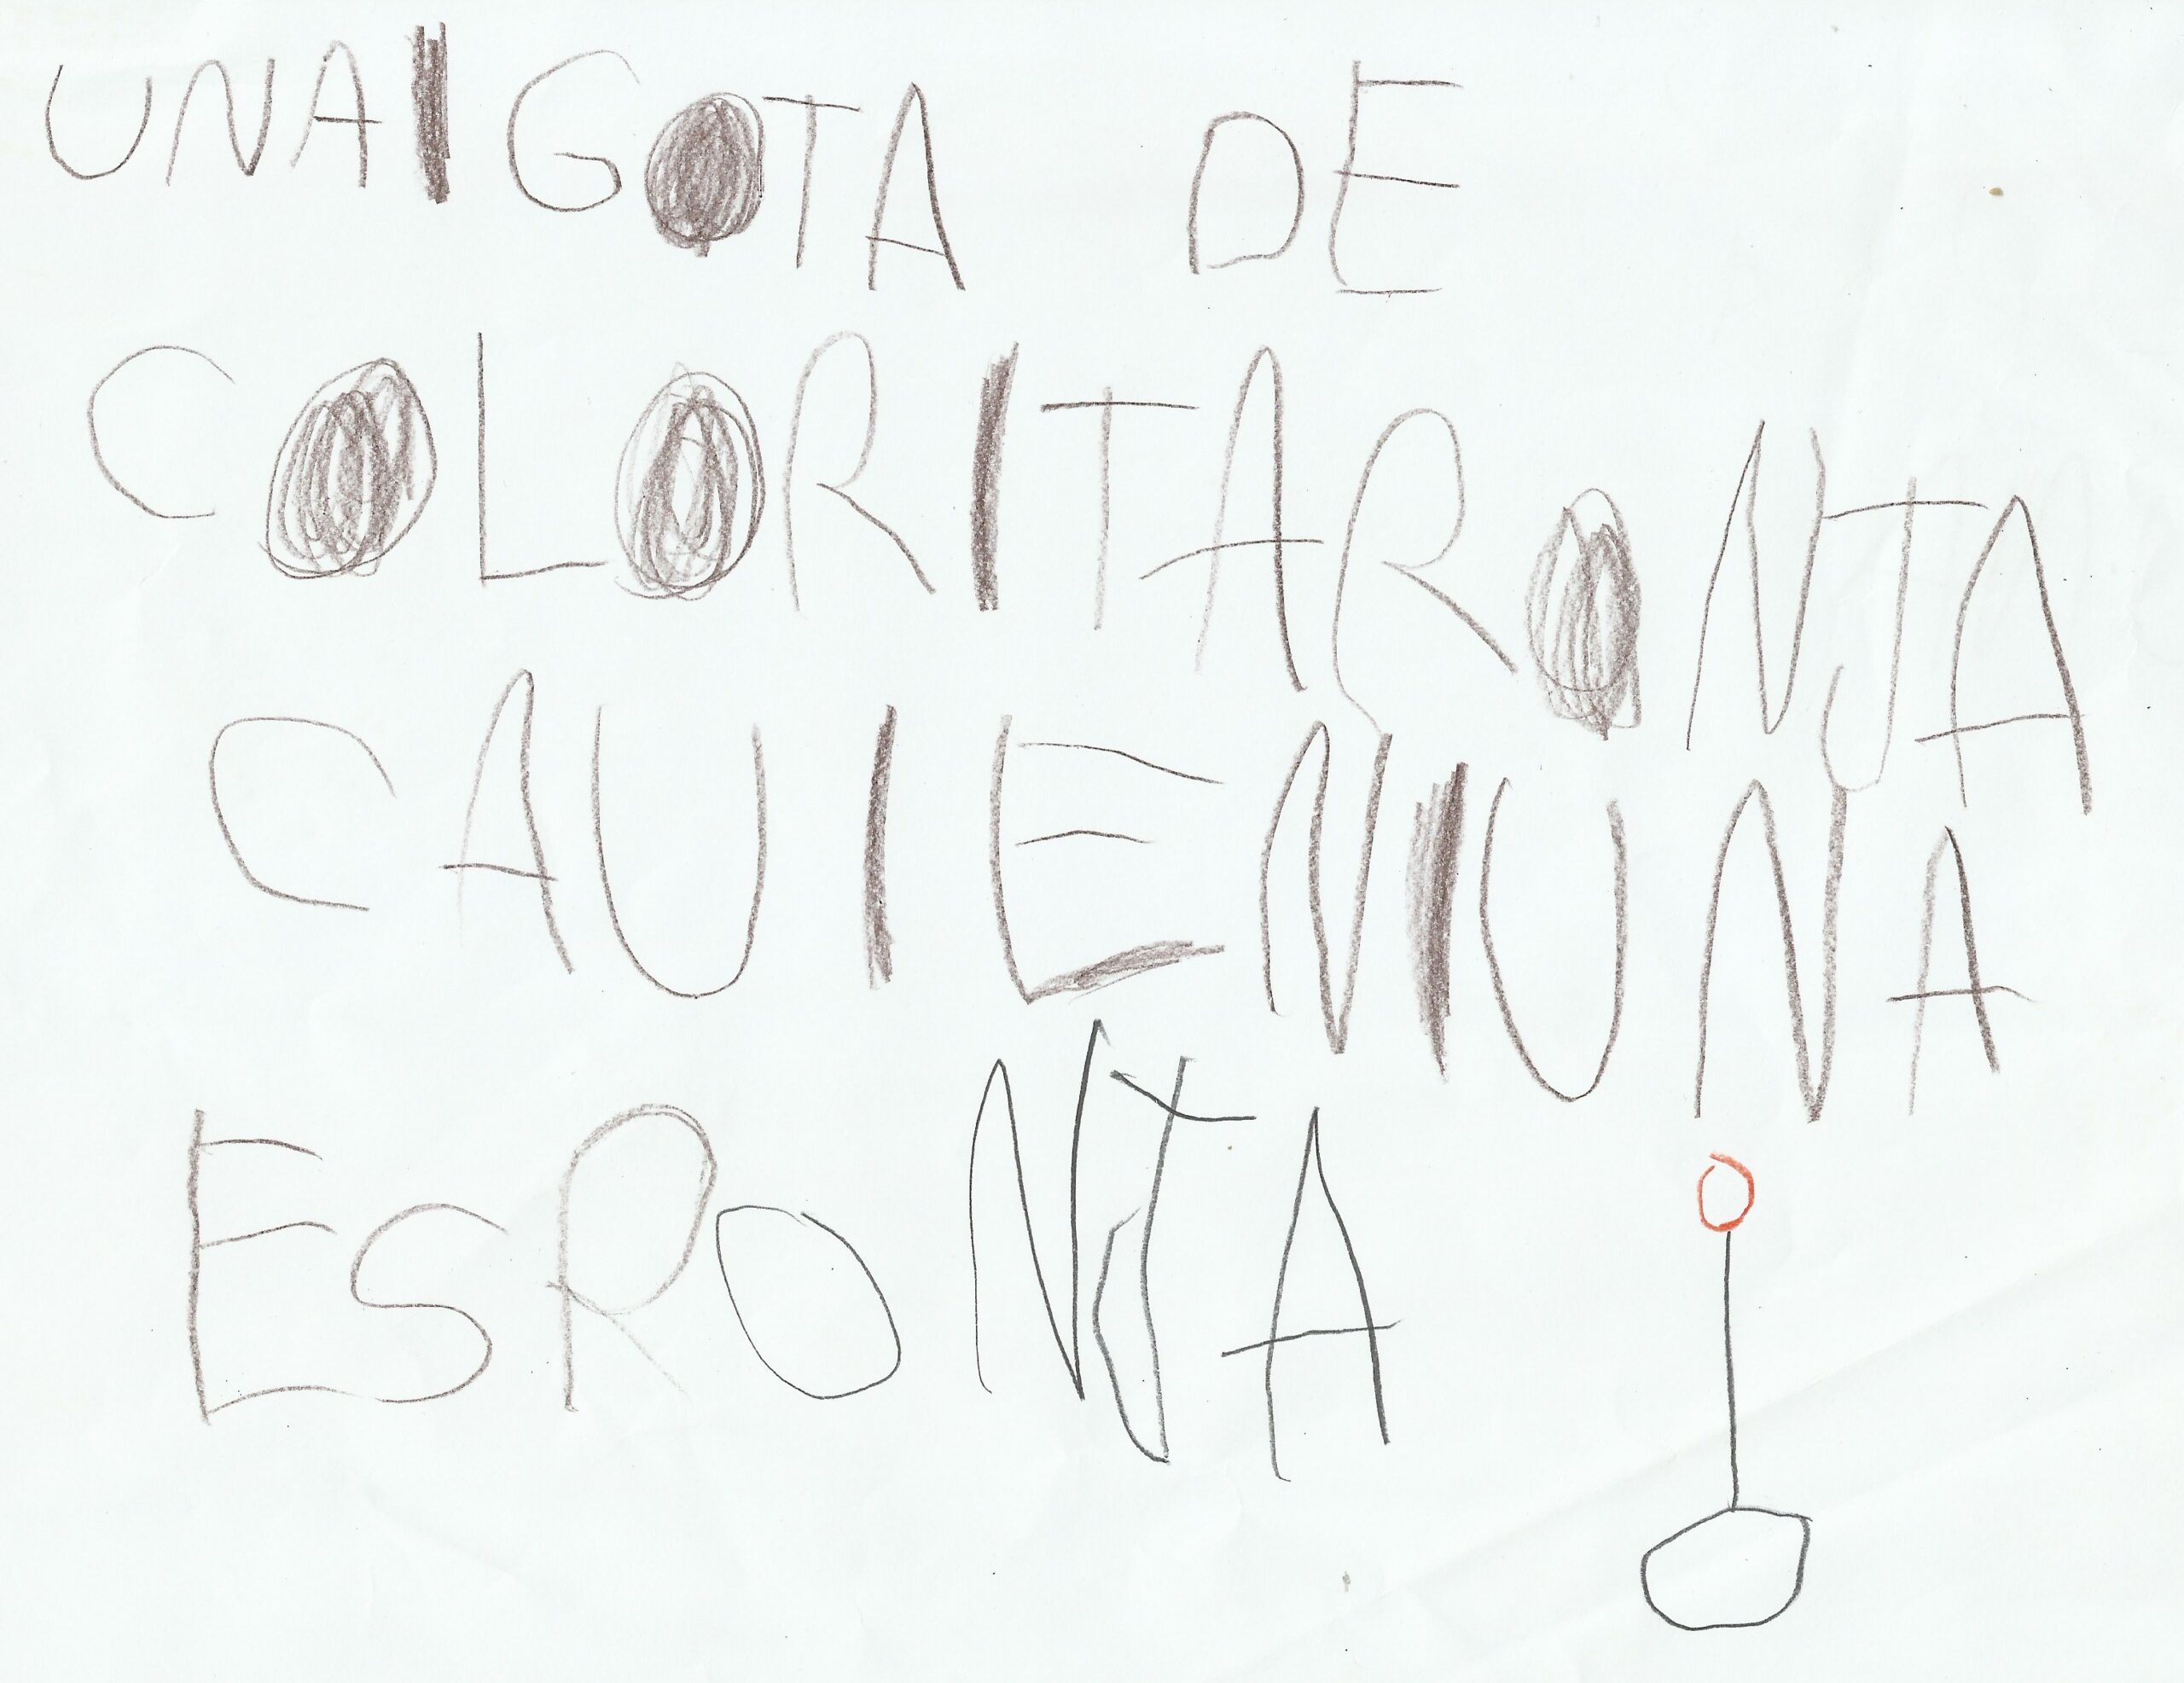 UNA I GOTA DE
COLOR I TARONJA
CAU I EN I UNA
ESRONJA